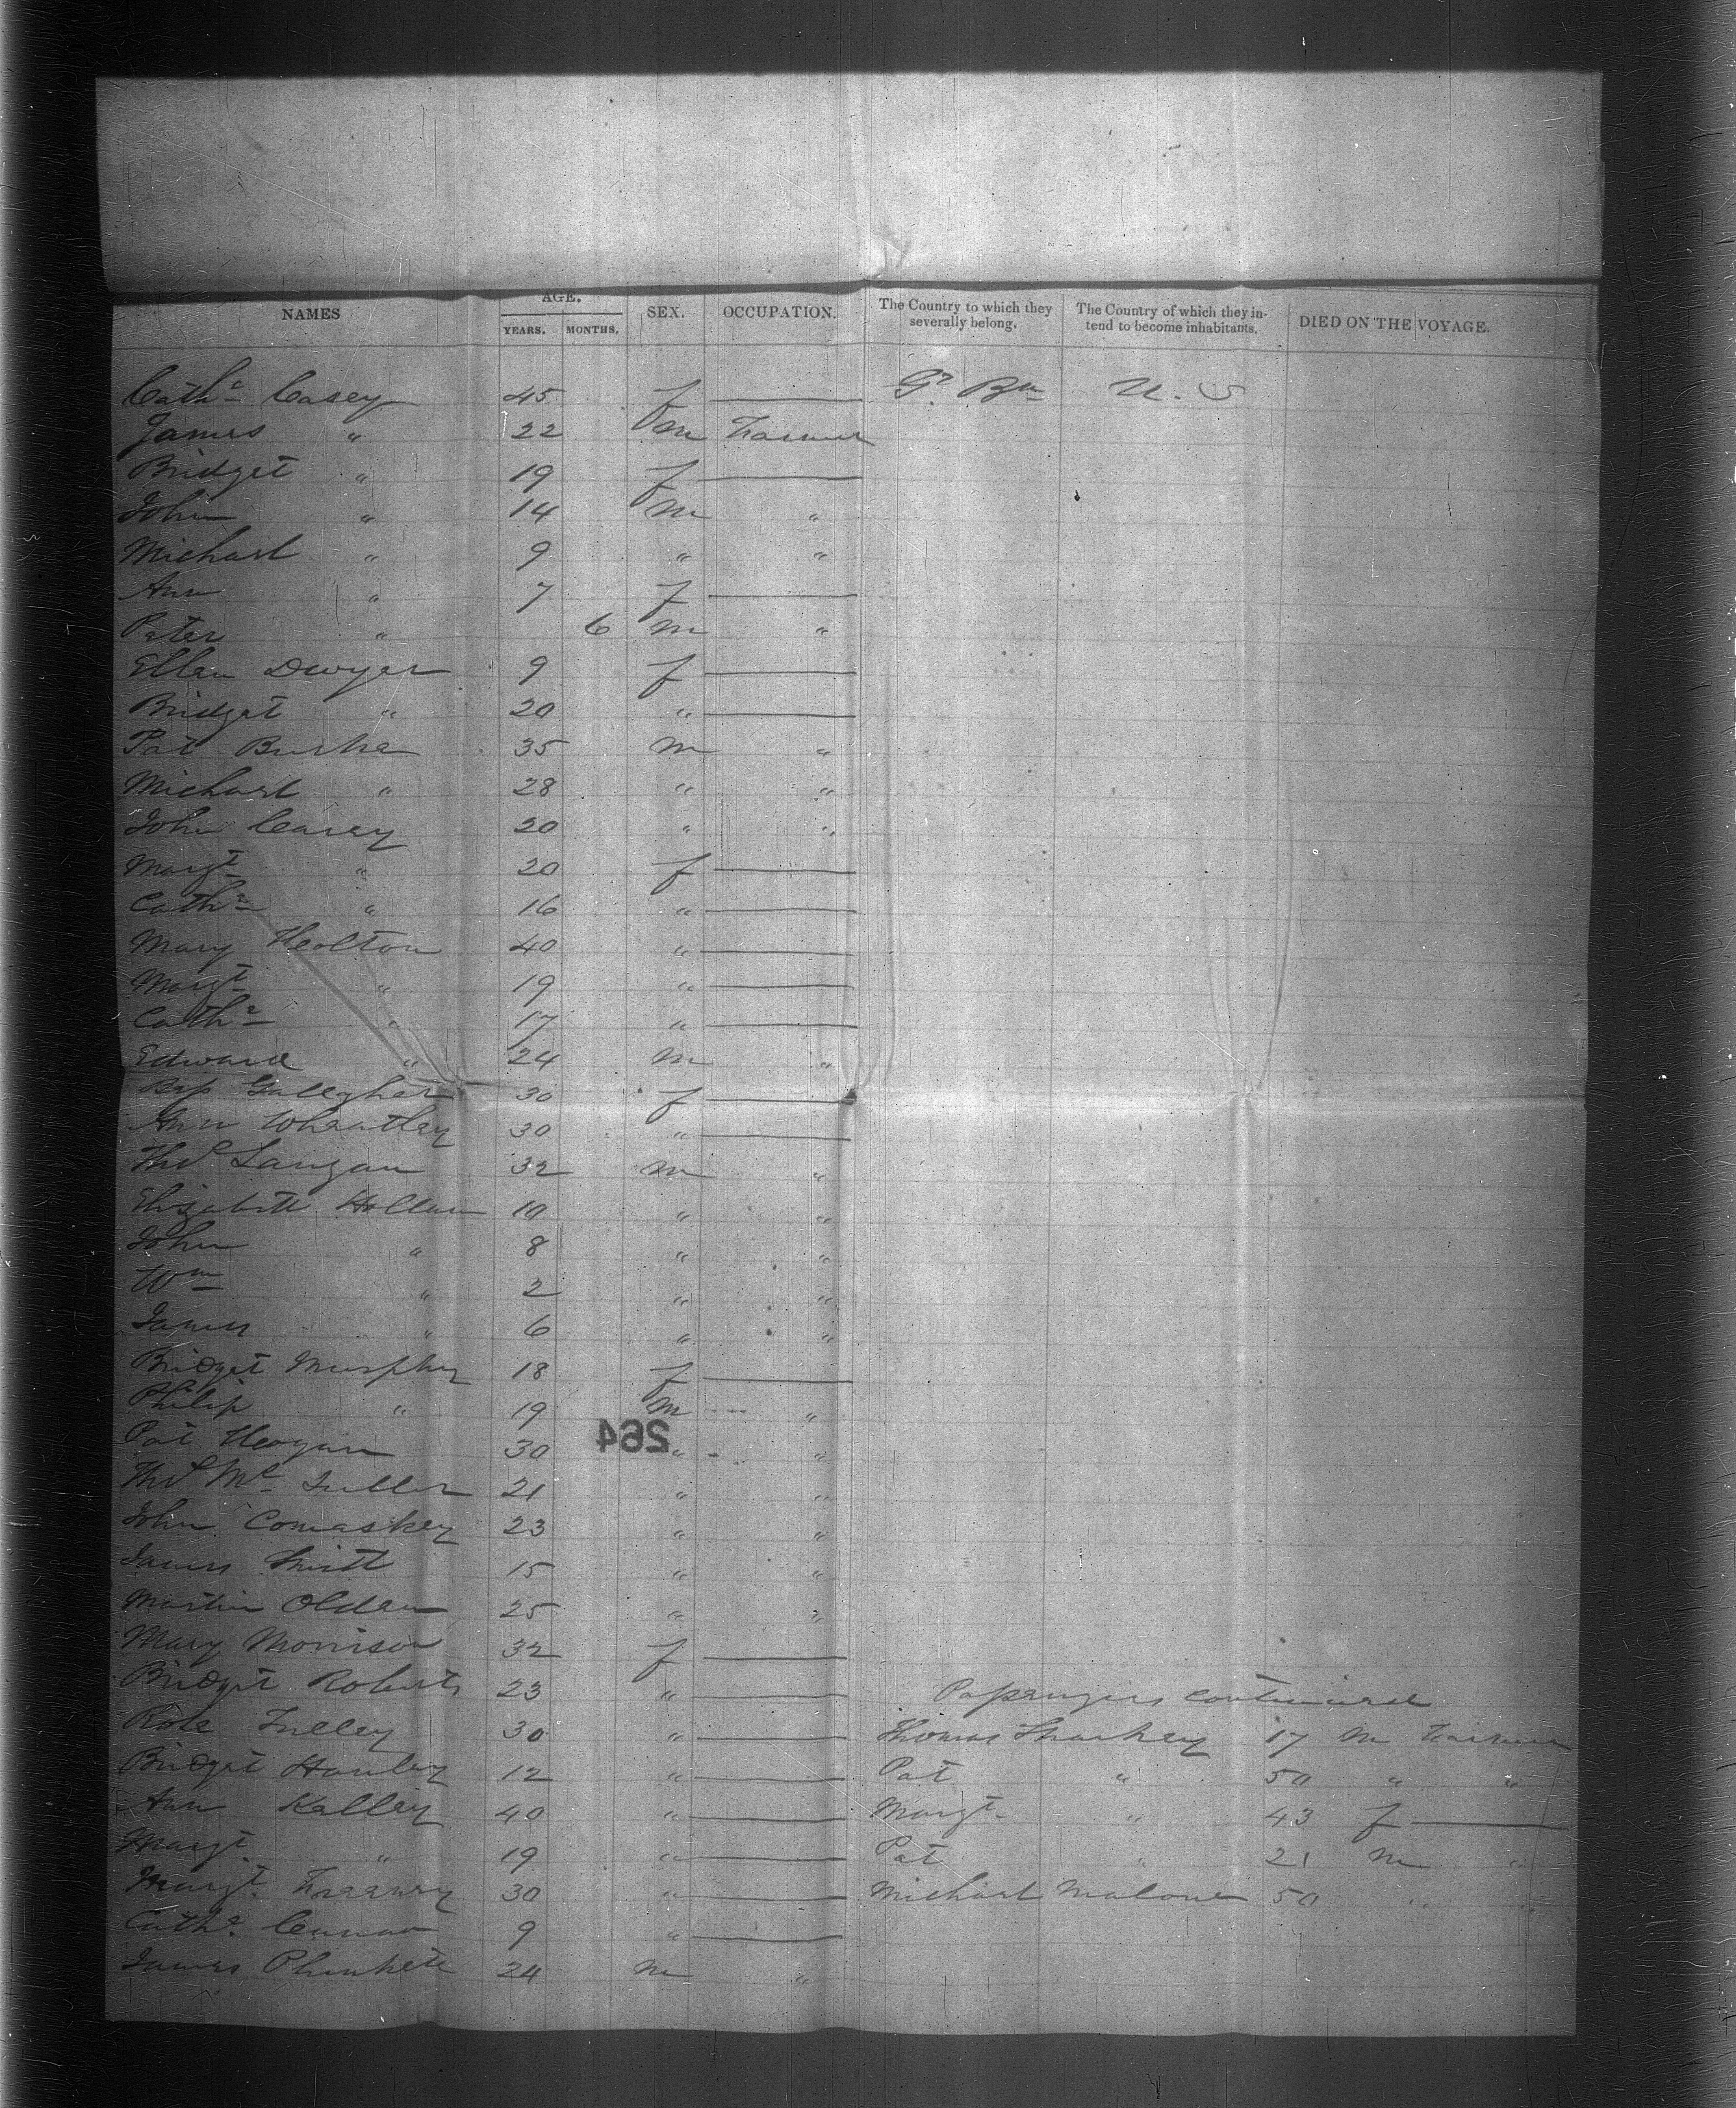 NAMES AGE. YEARS. MONTHS. SEX. OCCUPATION. The Country to which they severally belong. The Country of which they intend to become inhabitants. DIED ON THE VOYAGE.
Cathe Casey 45 f Gt Bn U. S
James " 22 m Farmer
Bridget " 19 f
John " 14 m "
Michael " 9 " "
Ann " 7 f
Peter " 6 m "
Ellen Dwyer 9 f
Bridget " 20 "
Pat Burke 35 m "
Michael " 28 " "
John Casey 20 " "
Margt " 20 f
Cathe " 16 "
Mary Heolton 40 "
Margt " 19 "
Cathe " 17 "
Edward " 24 m "
Bess Gallegher 30 f
Ann Wheatley 30 "
Thos Langan 32 m "
Elizabeth Hollan 10 " "
John " 8 " "
Wm " 2 " "
James " 6 " "
Bridget Murphy 18 f
Philip " 19 m "
264
Pat Heogan 30 " "
Thos Mc 21 " "
John Comaskey 23 " "
James Smith 15 " "
Martin Olden 25 " "
Mary Morrison 32 f
Bridget Roberts 23 "
Rose 30 "
Bridget Hanley 12 "
Ann Kelley 40 "
Margt " 19 "
Margt 30 "
Cathe 9 "
James Plunkett 24 m "
Passengers continued
Thomas Sharkey 17 m Farmer
Pat " 50 " "
Margt " 43 f
Pat " 21 m "
Michael Malone 50 " "